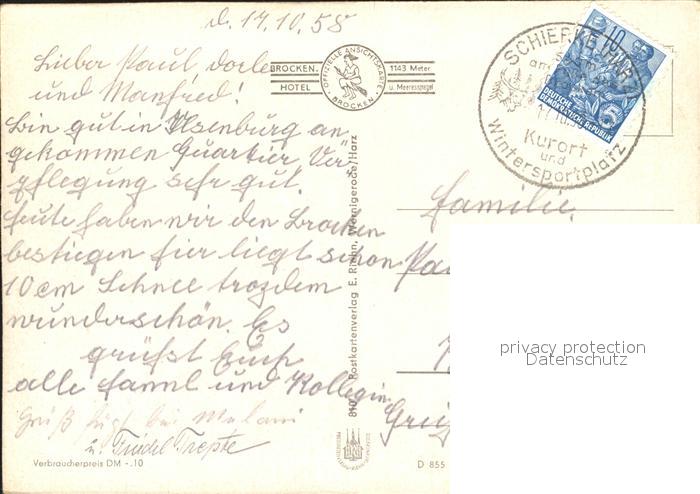 d. 17.10.58
Lieber Paul dorle
und Manfried!
bin gut in Ilsenburg an
gekommen Quartier, Ver
pflegung sehr gut.
heute haben wir den Brocken
bestiegen hier liegt schon
10 cm Schnee trozdem
wunderschön. Es
grüßt Euch
alle Hannl und Kollegin
Gruß fügt bei Melani
u. Friedel Trepte
Verbraucherpreis DM -.10
BROCKEN-
HOTEL
OFFIZIELLE ANSICHTSKARTE
BROCKEN
1143 Meter
u. Meeresspiegel
Postkartenverlag E. Riehn, Wernigerode/Harz
SCHIERKE
Kurort
und
Wintersportplatz
10
DEUTSCHE
DEMOKRATISCHE REPUBLIK
5
Familie
D 855
privacy protection
Datenschutz